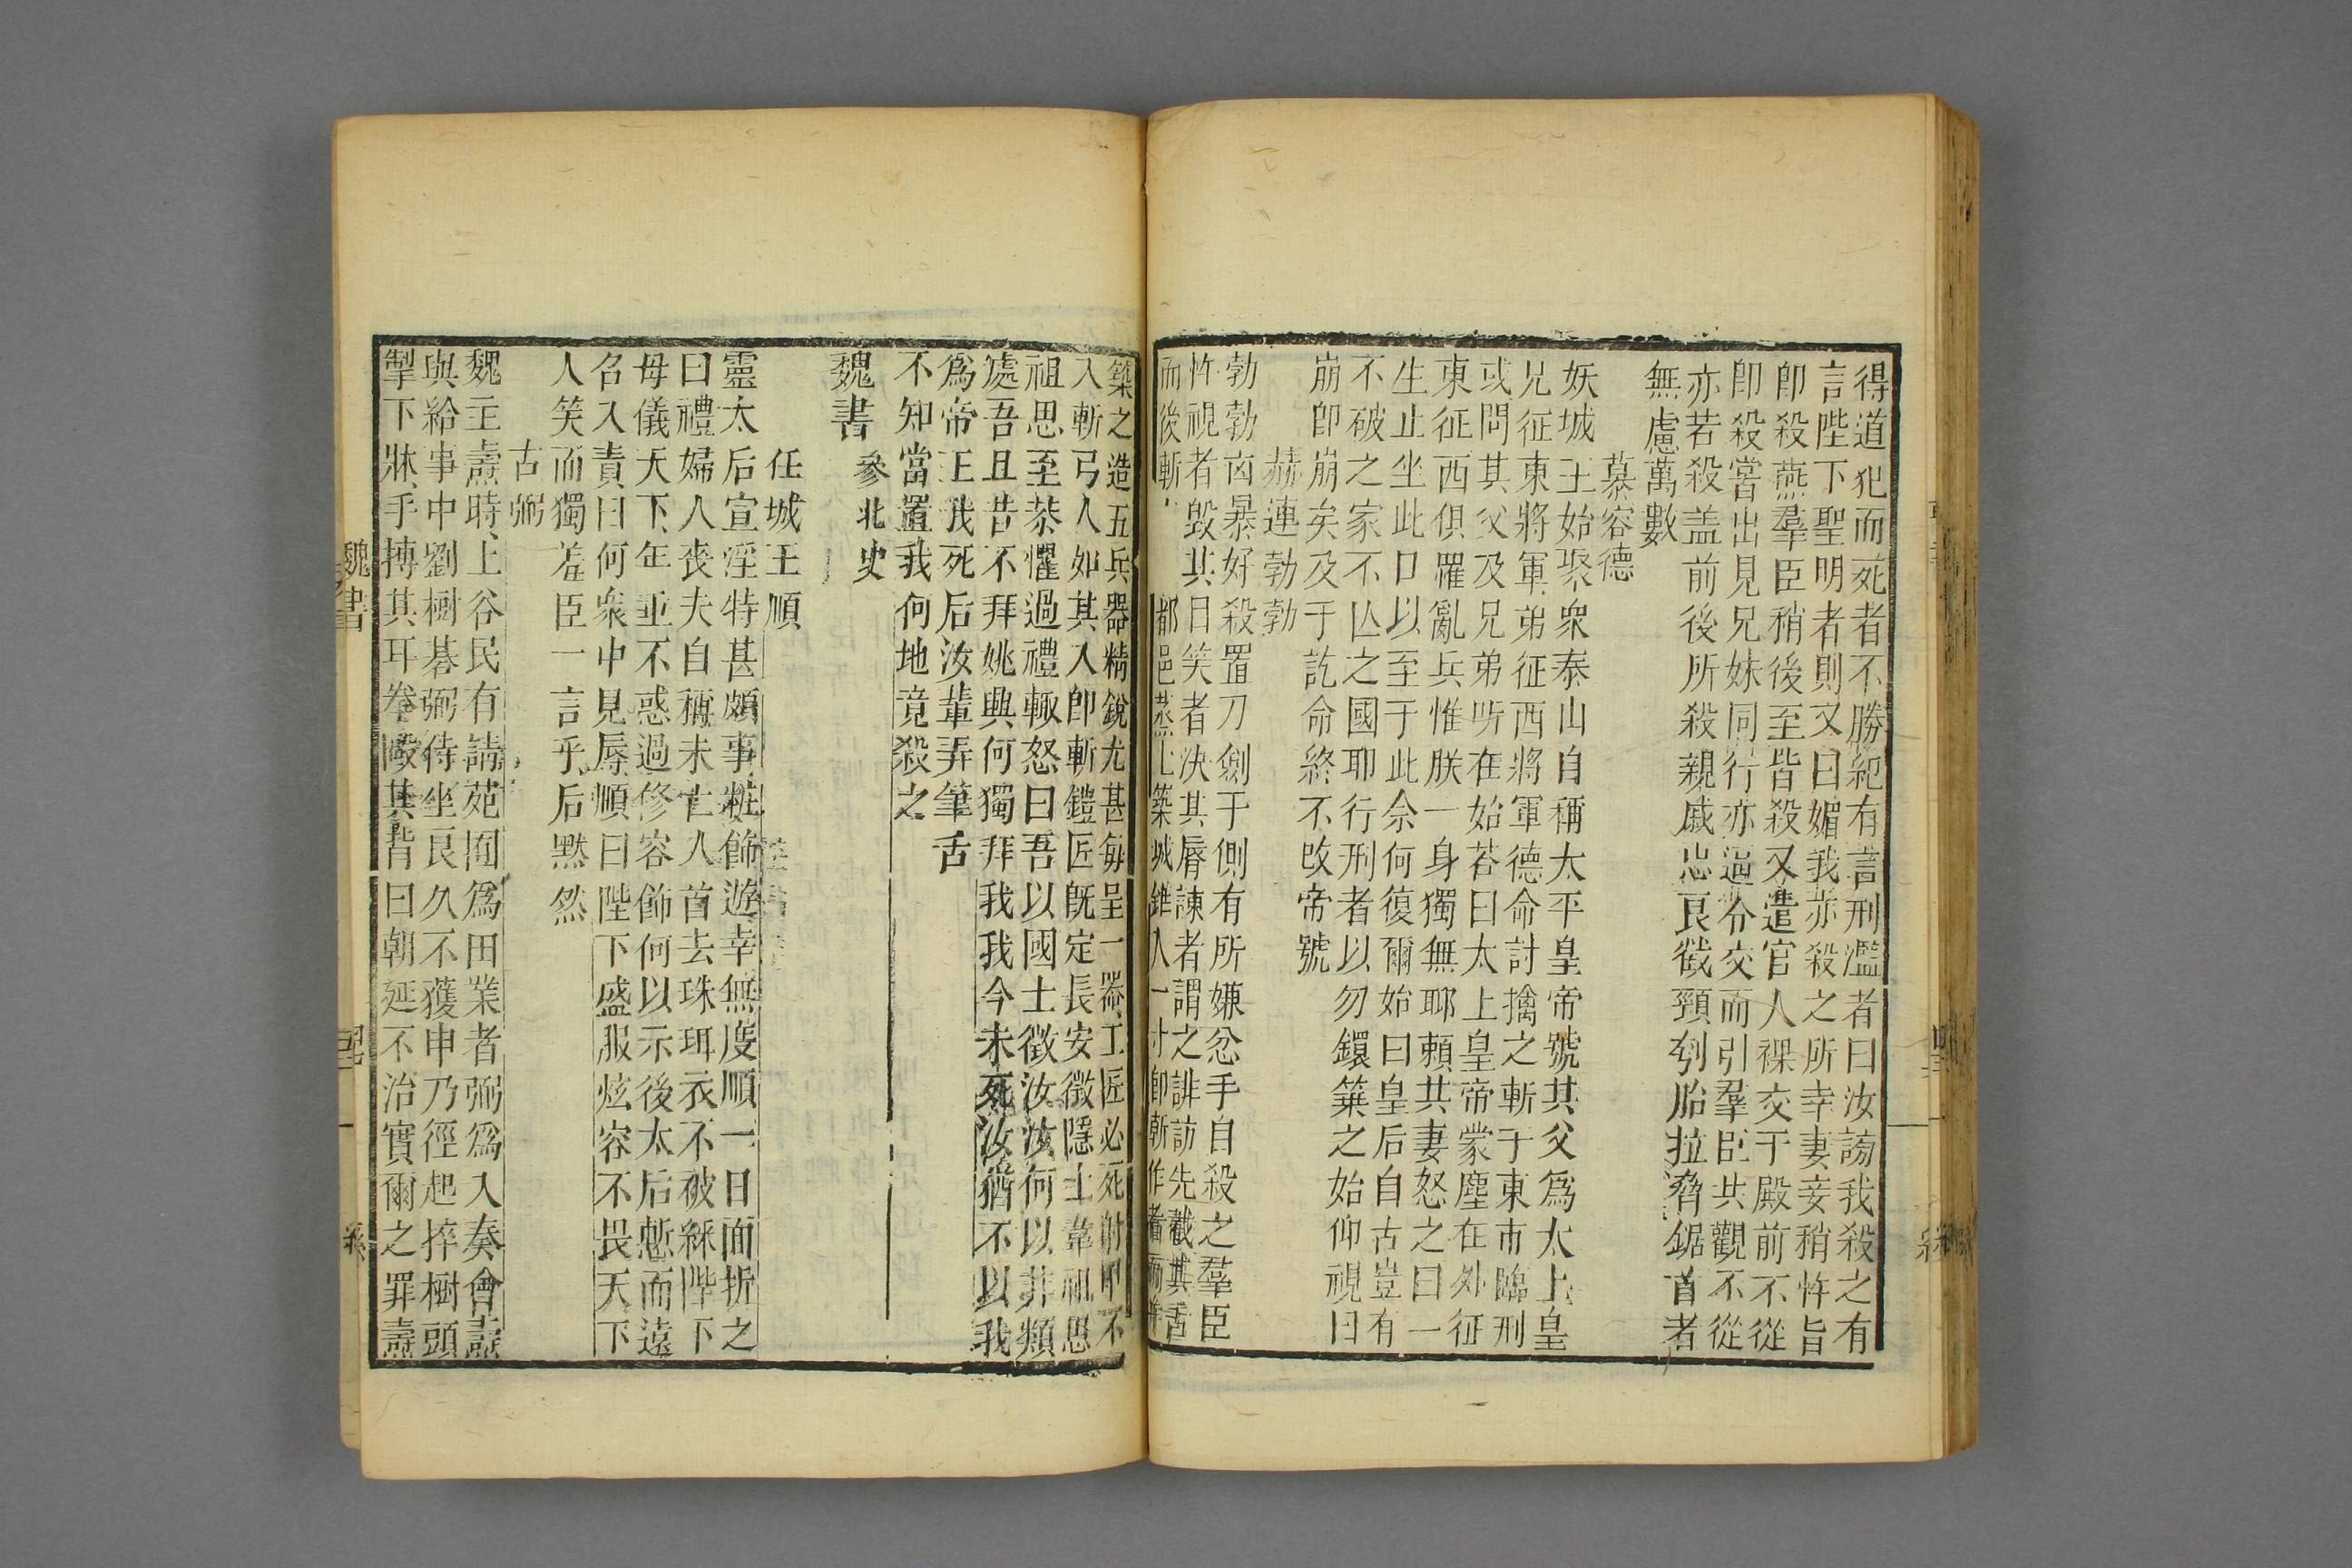 得道犯而死者不勝紀有言刑濫者曰汝謗我殺之有
言陛下聖明者則又曰媚我亦殺之所幸妻妾稍忤旨
卽殺燕羣臣稍後至皆殺又遣官人裸交于殿前不從
卽殺嘗出見兄妹同行亦逼令交而引羣臣共觀不從
亦若殺盖前後所殺親戚忠良截頸刳胎拉脅鋸首者
無慮萬數
慕容德
妖城王始聚衆泰山自稱太平皇帝號其父爲太上皇
兄征東將軍弟征西將軍德命討擒之斬于東市臨刑
或問其父及兄弟所在始荅曰太上皇帝蒙塵在外征
東征西俱罹亂兵惟朕一身獨無聊賴其妻怒之曰一
生止坐此口以至于此奈何復爾始曰皇后自古豈有
不破之家不亾之國耶行刑者以刀鐶築之始仰視曰
崩卽崩矣及于訖命終不改帝號
赫連勃勃
勃勃凶暴好殺置刀劍于側有所嫌忿手自殺之羣臣
忤視者毁其目笑者决其脣諫者謂之誹訪先截其舌
而後斬 都邑蒸土築城錐入一寸卽斬作者而并
築之造五兵器精銳尤甚每呈一器工匠必死射甲不
入斬弓人如其入卽斬鎧匠旣定長安徵隱士韋祖思
祖思至恭懼過禮輙怒曰吾以國士徵汝汝何以非類
處吾且昔不拜姚興何獨拜我我今未死汝猶不以我
爲帝王我死后汝輩弄筆舌
不知當置我何地竟殺之
魏書 參北史
任城王順
靈太后宣淫特甚頗事粧飾遊幸無度順一日面折之
曰禮婦人喪夫自稱未亡人首去珠珥衣不破綵陛下
母儀天下年並不惑過修容飾何以示後太后慙而遠
名入責曰何衆中見辱順曰陛下盛服炫容不畏天下
人笑而獨羞臣一言乎后黙然
古弼
魏主壽時上谷民有請苑囿爲田業者弼爲入奏會壽
與給事中劉樹碁弼侍坐良久不獲申乃徑起捽樹頭
掣下牀手搏其耳拳毆其背曰朝廷不治實爾之罪壽
魏書